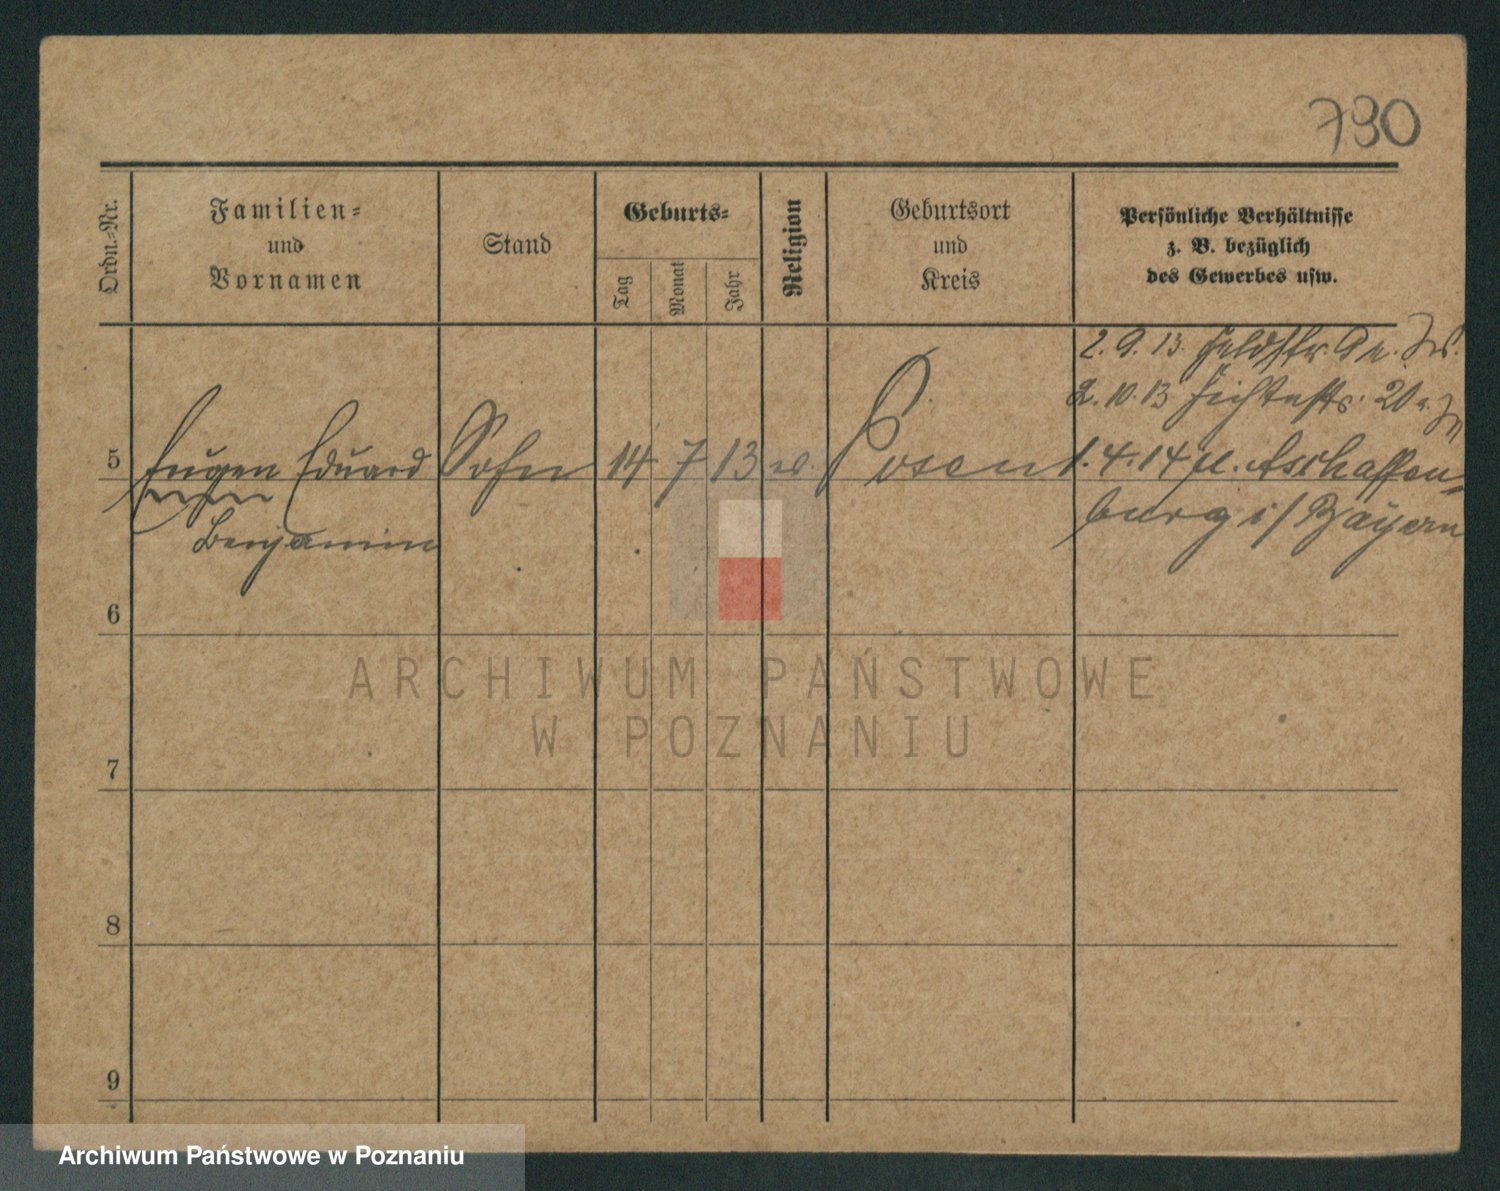 790
Ordn.-Nr.
Familien-
und
Vornamen
Stand
Geburts-
Tag
Monat
Jahr
Religion
Geburtsort
und
Kreis
Persönliche Verhältnisse
z. B. bezüglich
des Gewerbes usw.
2. 9. 13.
2. 10. 13
5 Eugen Eduard Sohn 14 7 13 Posen 1. 4. 14 Aschaffen-
burg i/ Bayern
Benjamin
6
7
8
9
ARCHIWUM PAŃSTWOWE
W POZNANIU
Archiwum Państwowe w Poznaniu